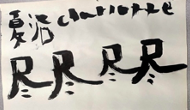 夏洛 Charlotte
尽 尽 尽 尽